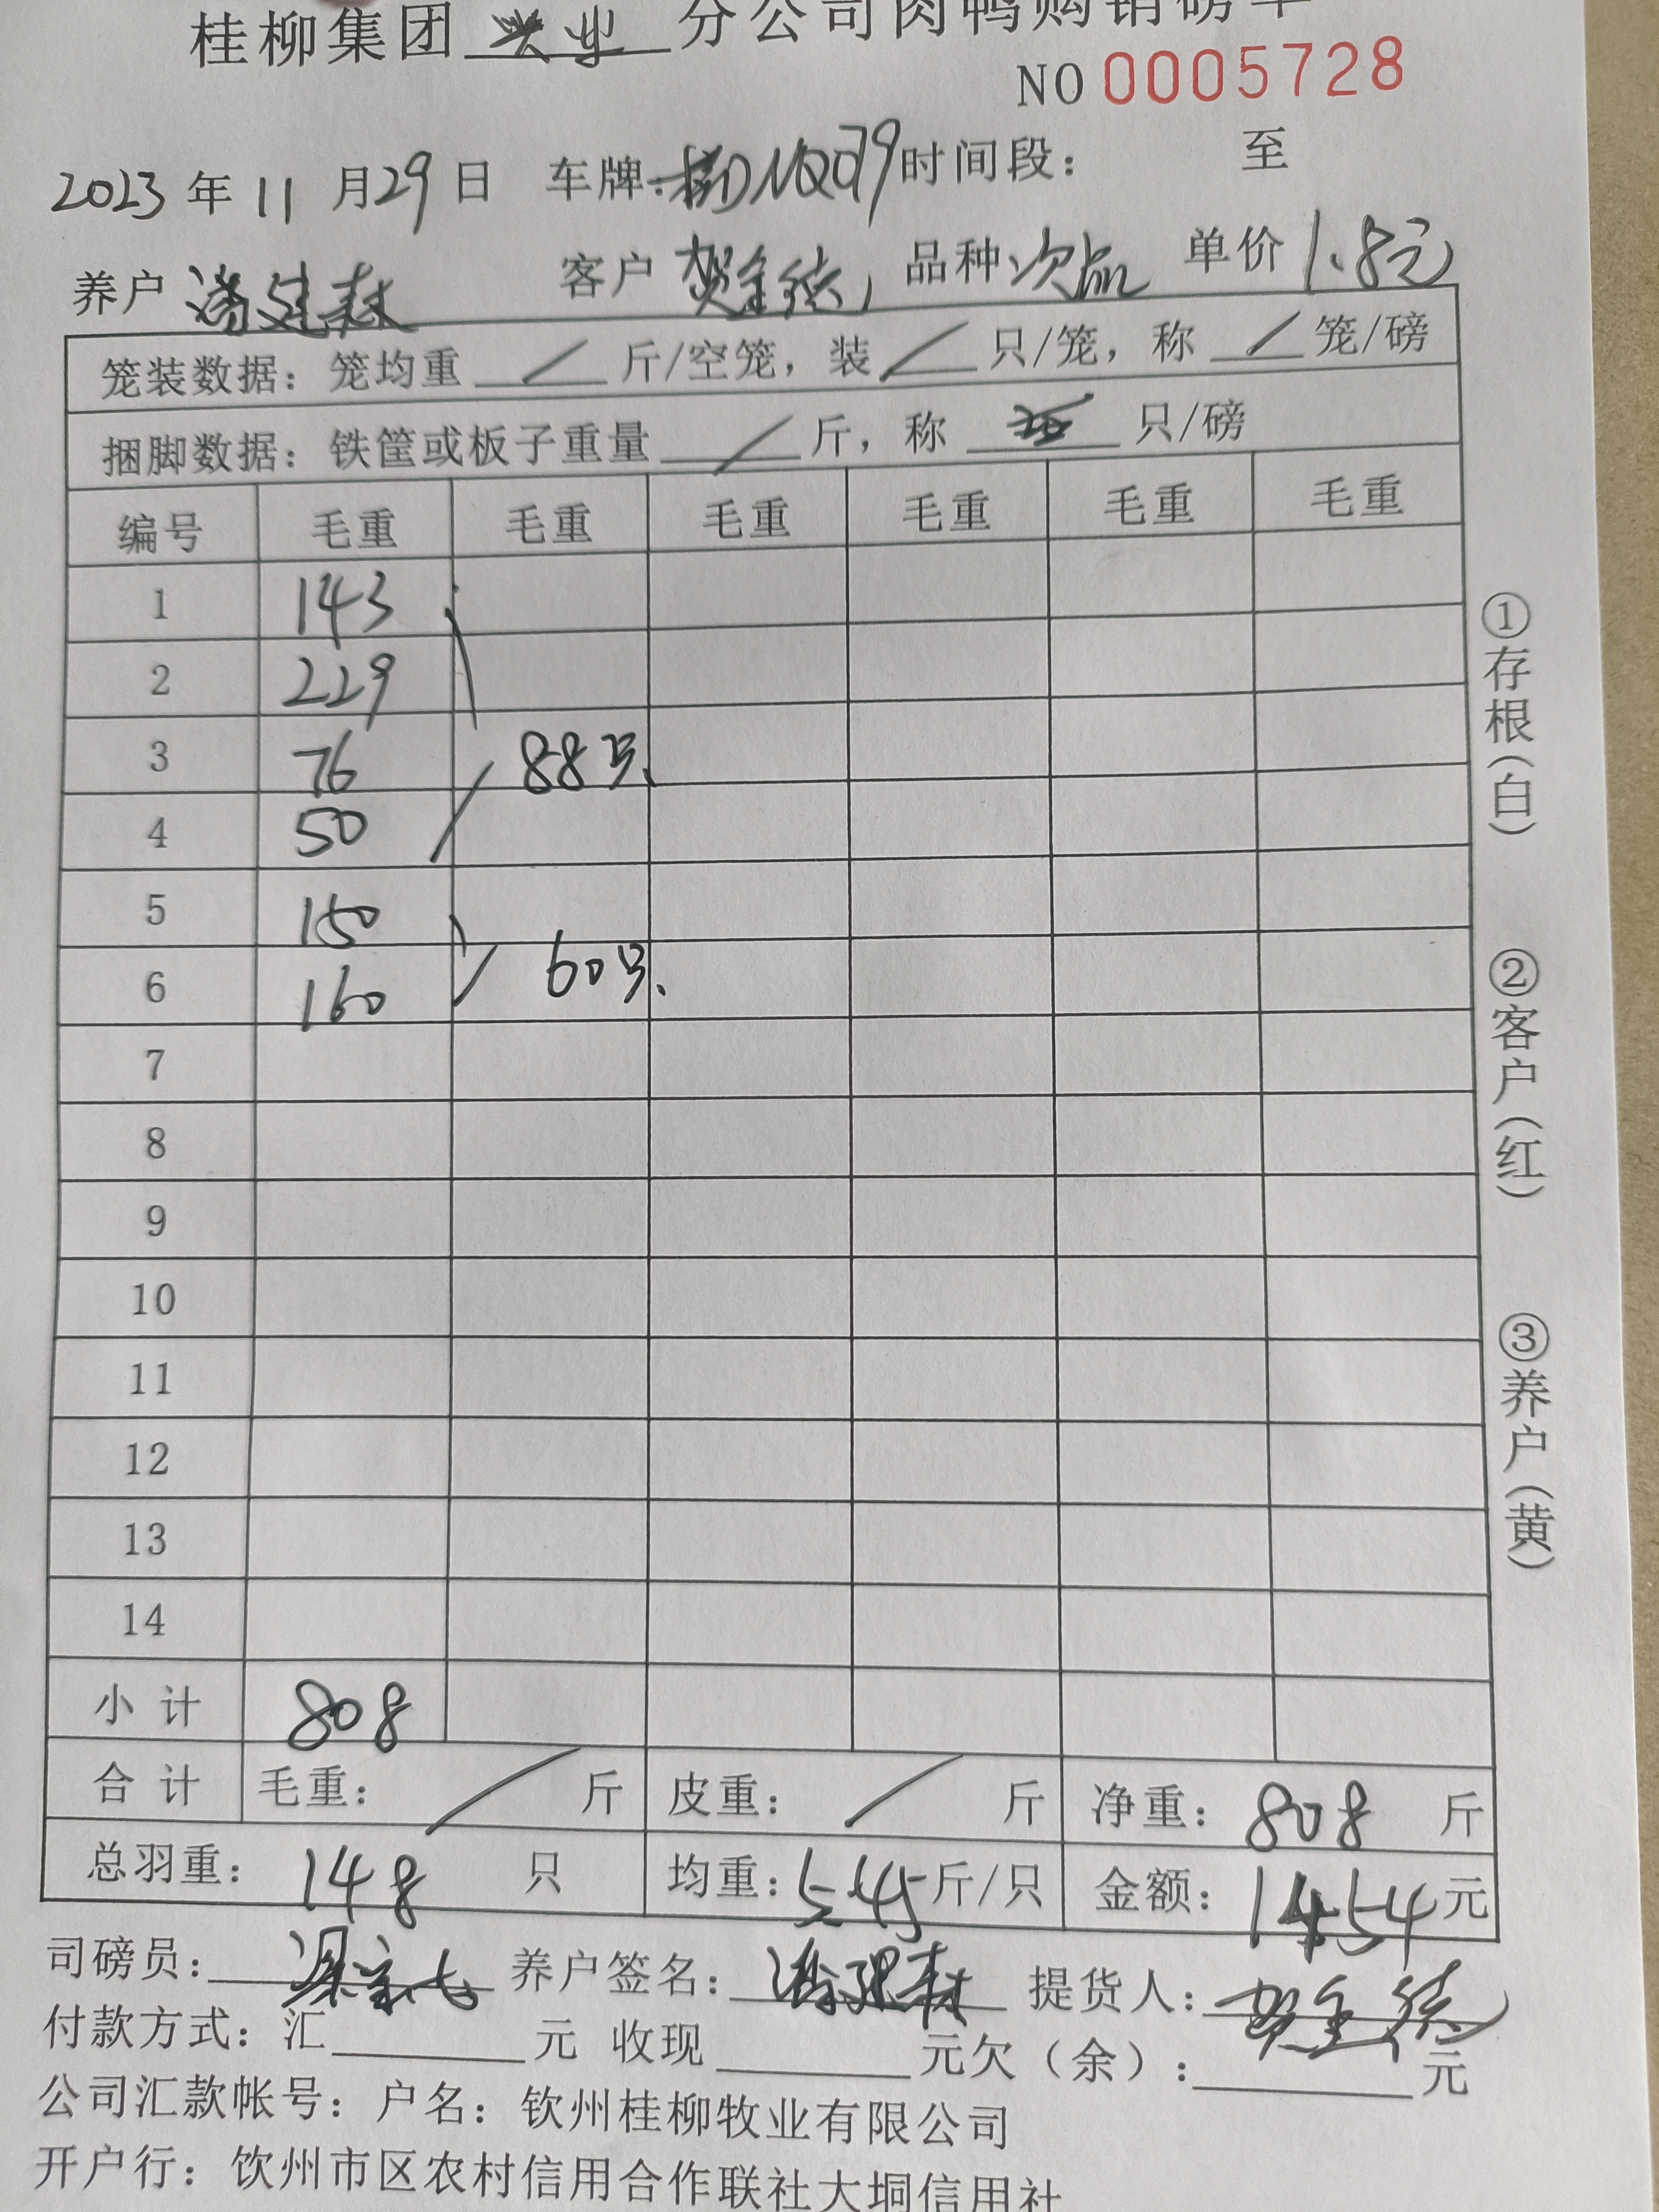 桂柳集团 兴业 分公司肉鸭购销磅单
NO 0005728
2023 年 11 月 29 日 车牌: 桂DNQ079 时间段: 至
养户 潘建森 客户 贺全德 品种 次品 单价 1.8元
笼装数据: 笼均重 / 斤/空笼, 装 / 只/笼, 称 / 笼/磅
捆脚数据: 铁筐或板子重量 / 斤, 称 只/磅
编号 毛重 毛重 毛重 毛重 毛重 毛重
1 143
2 229
3 76 88只
4 50
5 150
6 160 60只
7
8
9
10
11
12
13
14
小计 808
合计 毛重: / 斤 皮重: / 斤 净重: 808 斤
总羽重: 148 只 均重: 5.45 斤/只 金额: 1454 元
司磅员: 养户签名: 潘建森 提货人: 贺全德
付款方式: 汇 元 收现 元欠(余): 元
公司汇款帐号: 户名: 钦州桂柳牧业有限公司
开户行: 饮州市区农村信用合作联社大垌信用社
①存根(白)
②客户(红)
③养户(黄)